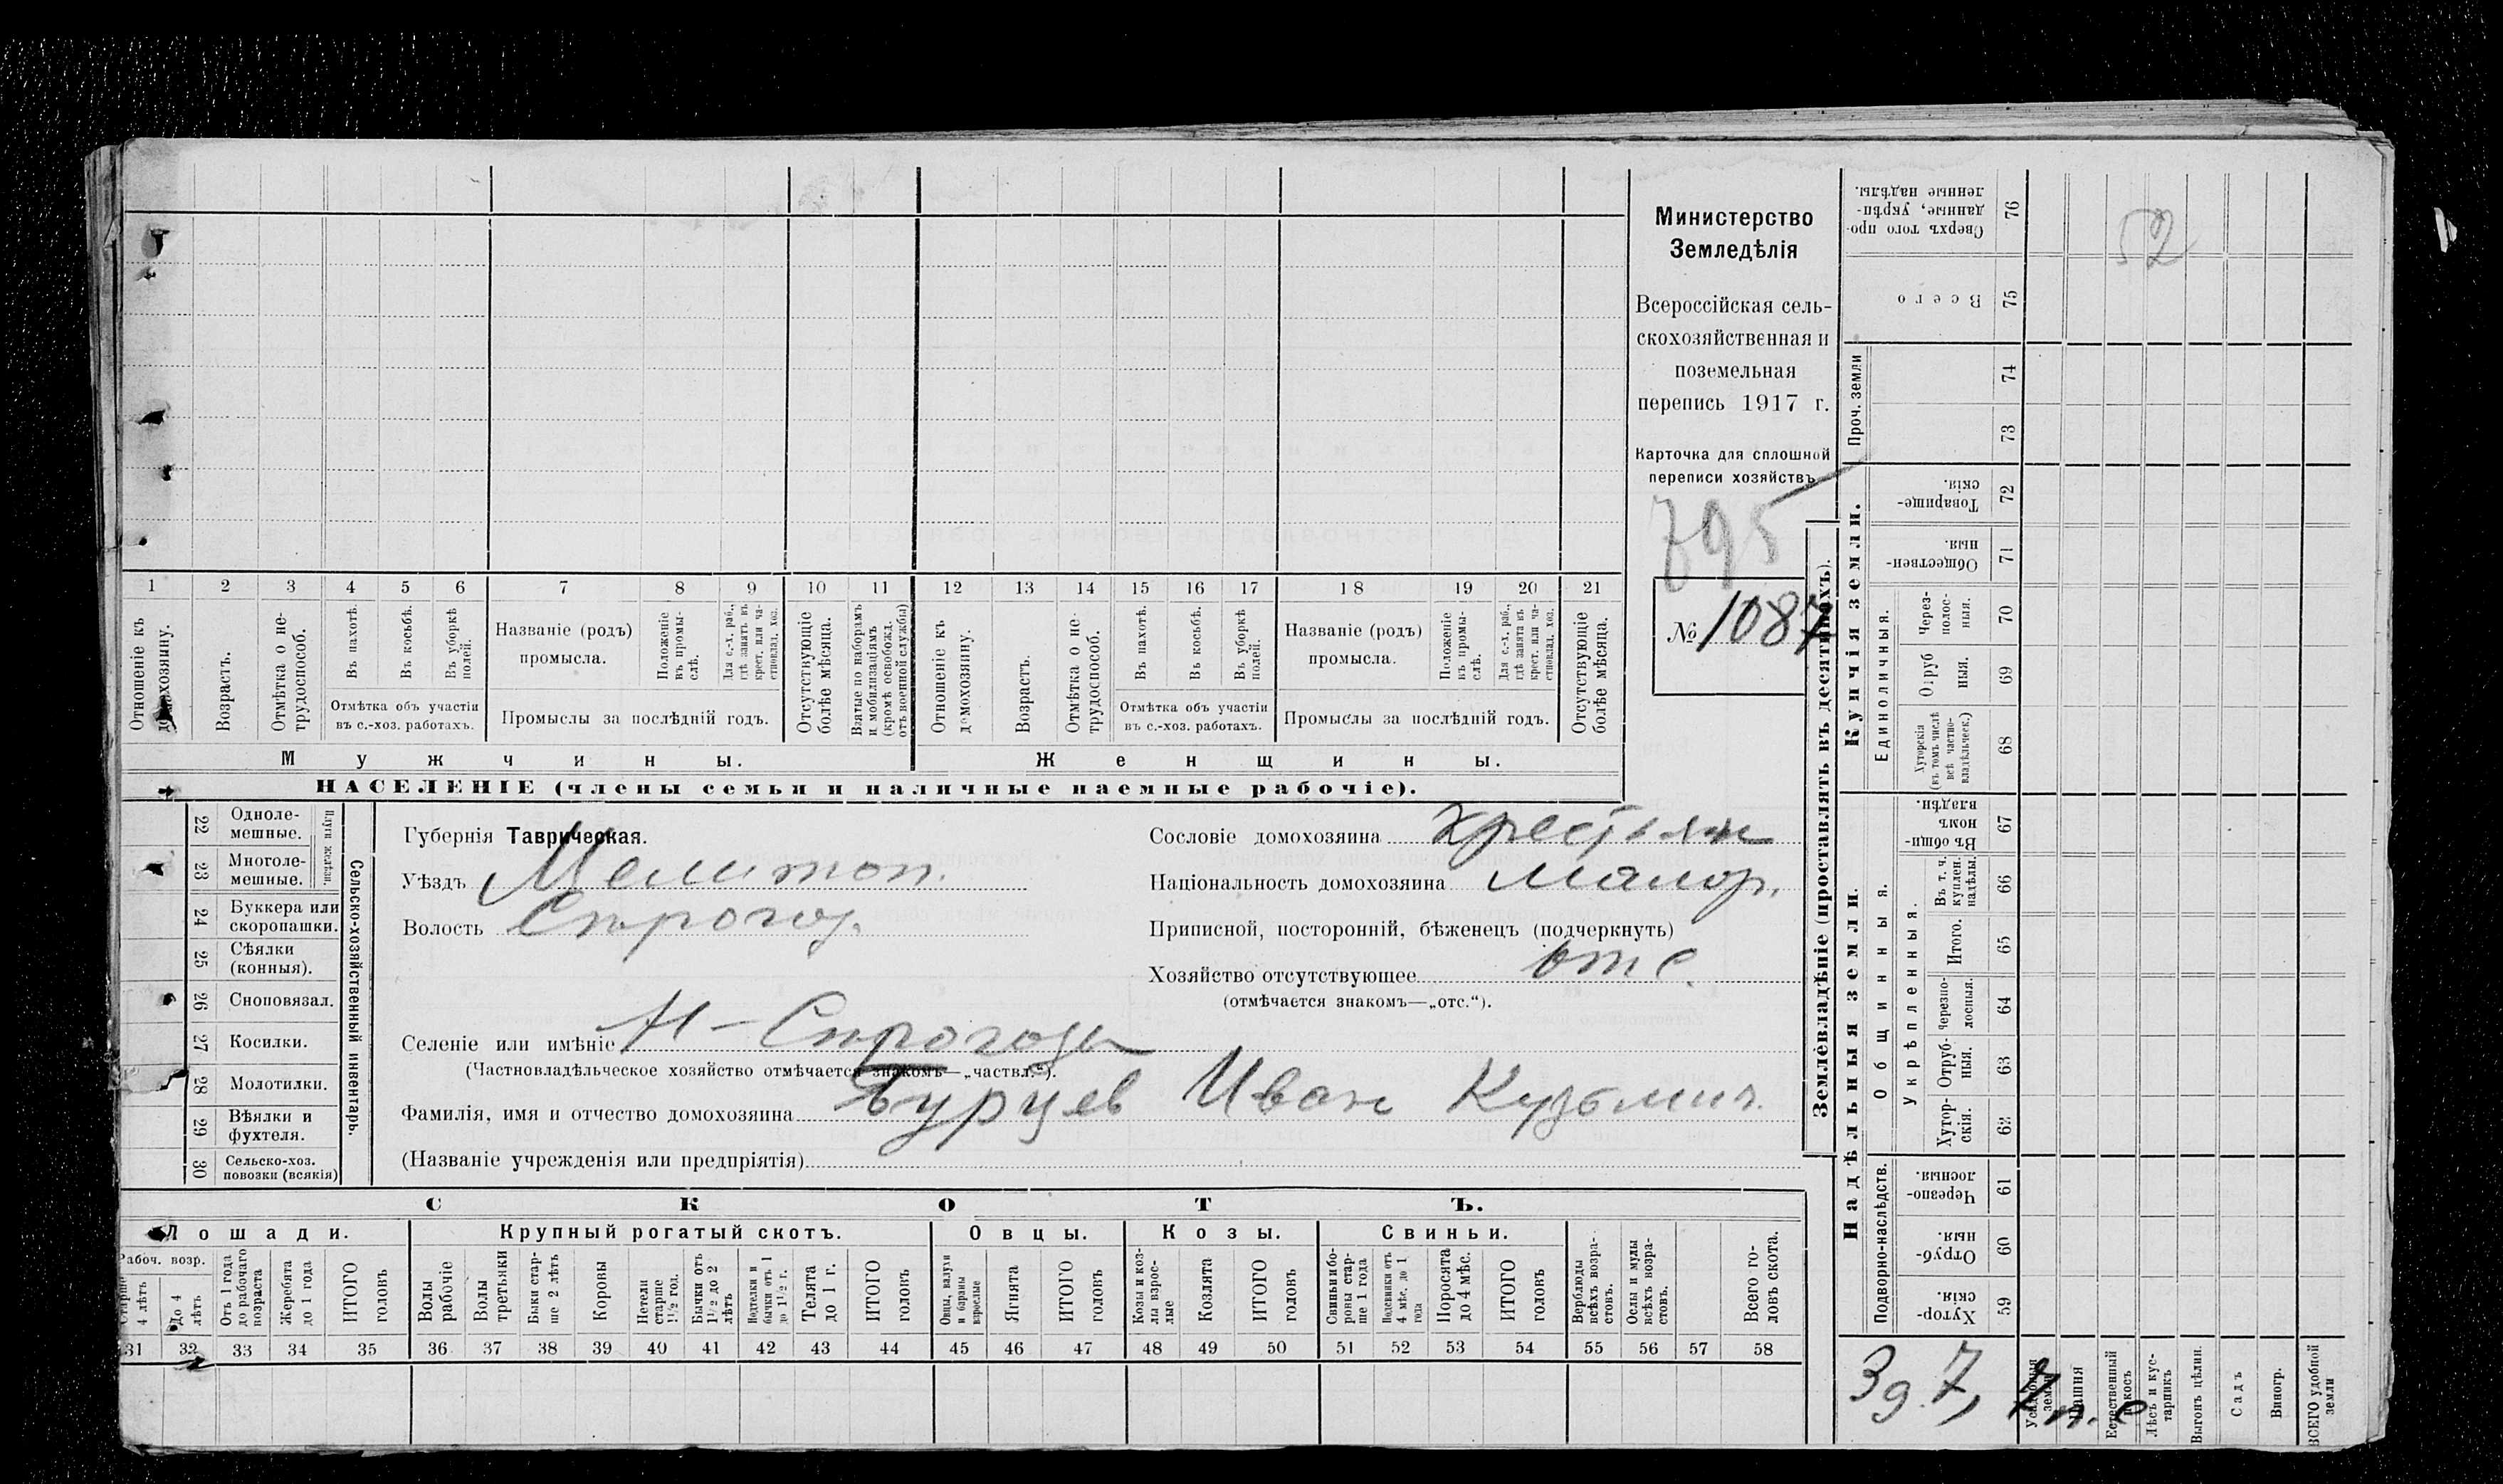 Министерство
Земледѣлія
Всероссійская сель-
скохозяйственная и
поземельная
перепись 1917 г.
Карточка для сплошной
переписи хозяйствъ
795
№ 1087
1 2 3 4 5 6 7 8 9 10 11 12 13 14 15 16 17 18 19 20 21
Отношеніе къ домохозяину.
Возрастъ.
Отмѣтка о не-
трудоспособ.
Въ пахотѣ.
Въ косьбѣ.
Въ уборкѣ
полей.
Отмѣтка объ участіи
въ с.-хоз. работахъ.
Названіе (родъ)
промысла.
Положеніе
въ промы-
слѣ.
Для с.-х. раб.,
гдѣ занятъ въ
крест. или ча-
стновлад. хоз.
Промыслы за послѣдній годъ.
Отсутствующіе
болѣе мѣсяца.
Взятые по наборамъ
и мобилизаціямъ
(кромѣ освобожд.
отъ военной службы)
Отношеніе къ
домохозяину.
Возрастъ.
Отмѣтка о не-
трудоспособ.
Въ пахотѣ.
Въ косьбѣ.
Въ уборкѣ
полей.
Отмѣтка объ участіи
въ с.-хоз. работахъ.
Названіе (родъ)
промысла.
Положеніе
въ промы-
слѣ.
Для с.-х. раб.,
гдѣ занята въ
крест. или ча-
стновлад. хоз.
Промыслы за послѣдній годъ.
Отсутствующіе
болѣе мѣсяца.
Мужчины. Женщины.
НАСЕЛЕНІЕ (члены семьи и наличные наемные рабочіе).
22 Одноле-
мешные.
23 Многоле-
мешные.
Плуги желѣзн.
24 Буккера или
скоропашки.
25 Сѣялки
(конныя).
26 Сноповязал.
27 Косилки.
28 Молотилки.
29 Вѣялки и
фухтеля.
30 Сельско-хоз.
повозки (всякія)
Сельско-хозяйственный инвентарь.
Губернія Таврическая.
Уѣздъ Мелитоп.
Волость Строгоз.
Сословіе домохозяина крестьян
Національность домохозяина малор.
Приписной, посторонній, бѣженецъ (подчеркнуть)
Хозяйство отсутствующее отс
(отмѣчается знакомъ—„отс.“).
Селеніе или имѣніе Н-Строгозы
(Частновладѣльческое хозяйство отмѣчается знакомъ—„частвл.“).
Фамилія, имя и отчество домохозяина Бурцев Иван Кузьмич.
(Названіе учрежденія или предпріятія)
СКОТЪ.
Лошади. Крупный рогатый скотъ. Овцы. Козы. Свиньи.
Рабоч. возр.
Старше
4 лѣтъ
До 4
лѣтъ
Отъ 1 года
до рабочаго
возраста
Жеребята
до 1 года
ИТОГО
головъ
Волы
рабочіе
Волы
третьяки
Быки стар-
ше 2 лѣтъ
Коровы
Нетели
старше
1½ год.
Бычки отъ
1½ до 2
лѣтъ
Подтелки и
бычки отъ 1
до 1½ г.
Телята
до 1 г.
ИТОГО
головъ
Овцы, валухи
и бараны
взрослые
Ягнята
ИТОГО
головъ
Козы и коз-
лы взрос-
лые
Козлята
ИТОГО
головъ
Свиньи и бо-
ровы стар-
ше 1 года
Подсвинки отъ
4 мѣс. до 1
года
Поросята
до 4 мѣс.
ИТОГО
головъ
Верблюды
всѣхъ возра-
стовъ.
Ослы и мулы
всѣхъ возра-
стовъ.
Всего го-
ловъ скота.
31 32 33 34 35 36 37 38 39 40 41 42 43 44 45 46 47 48 49 50 51 52 53 54 55 56 57 58
Землевладѣніе (проставлять въ десятинахъ).
Купчія земли.
Надѣльныя земли.
Сверхъ того про-
данные, укрѣп-
ленные надѣлы. 76
Всего 75
Проч. земли
74
73
Товарище-
скія. 72
Обществен-
ныя. 71
Единоличныя.
Через-
полос-
ныя. 70
Отруб
ныя. 69
Хуторскія
(въ томъ числѣ
всѣ частно-
владѣльческ.) 68
Общинныя.
Въ общи-
номъ
владѣн. 67
Укрѣпленныя.
Въ т. ч.
куплен.
надѣлы. 66
Итого. 65
Черезпо-
лосныя. 64
Отруб-
ныя. 63
Хутор-
скія. 62
Подворно-наслѣдств.
Черезпо-
лосныя. 61
Отруб-
ныя. 60
Хутор-
скія. 59
52
Усадебная
земля
Пашня
Естественный
покосъ
Лѣсъ и кус-
тарникъ
Выгонъ цѣлин.
Садъ
Виногр.
ВСЕГО удобной
земли